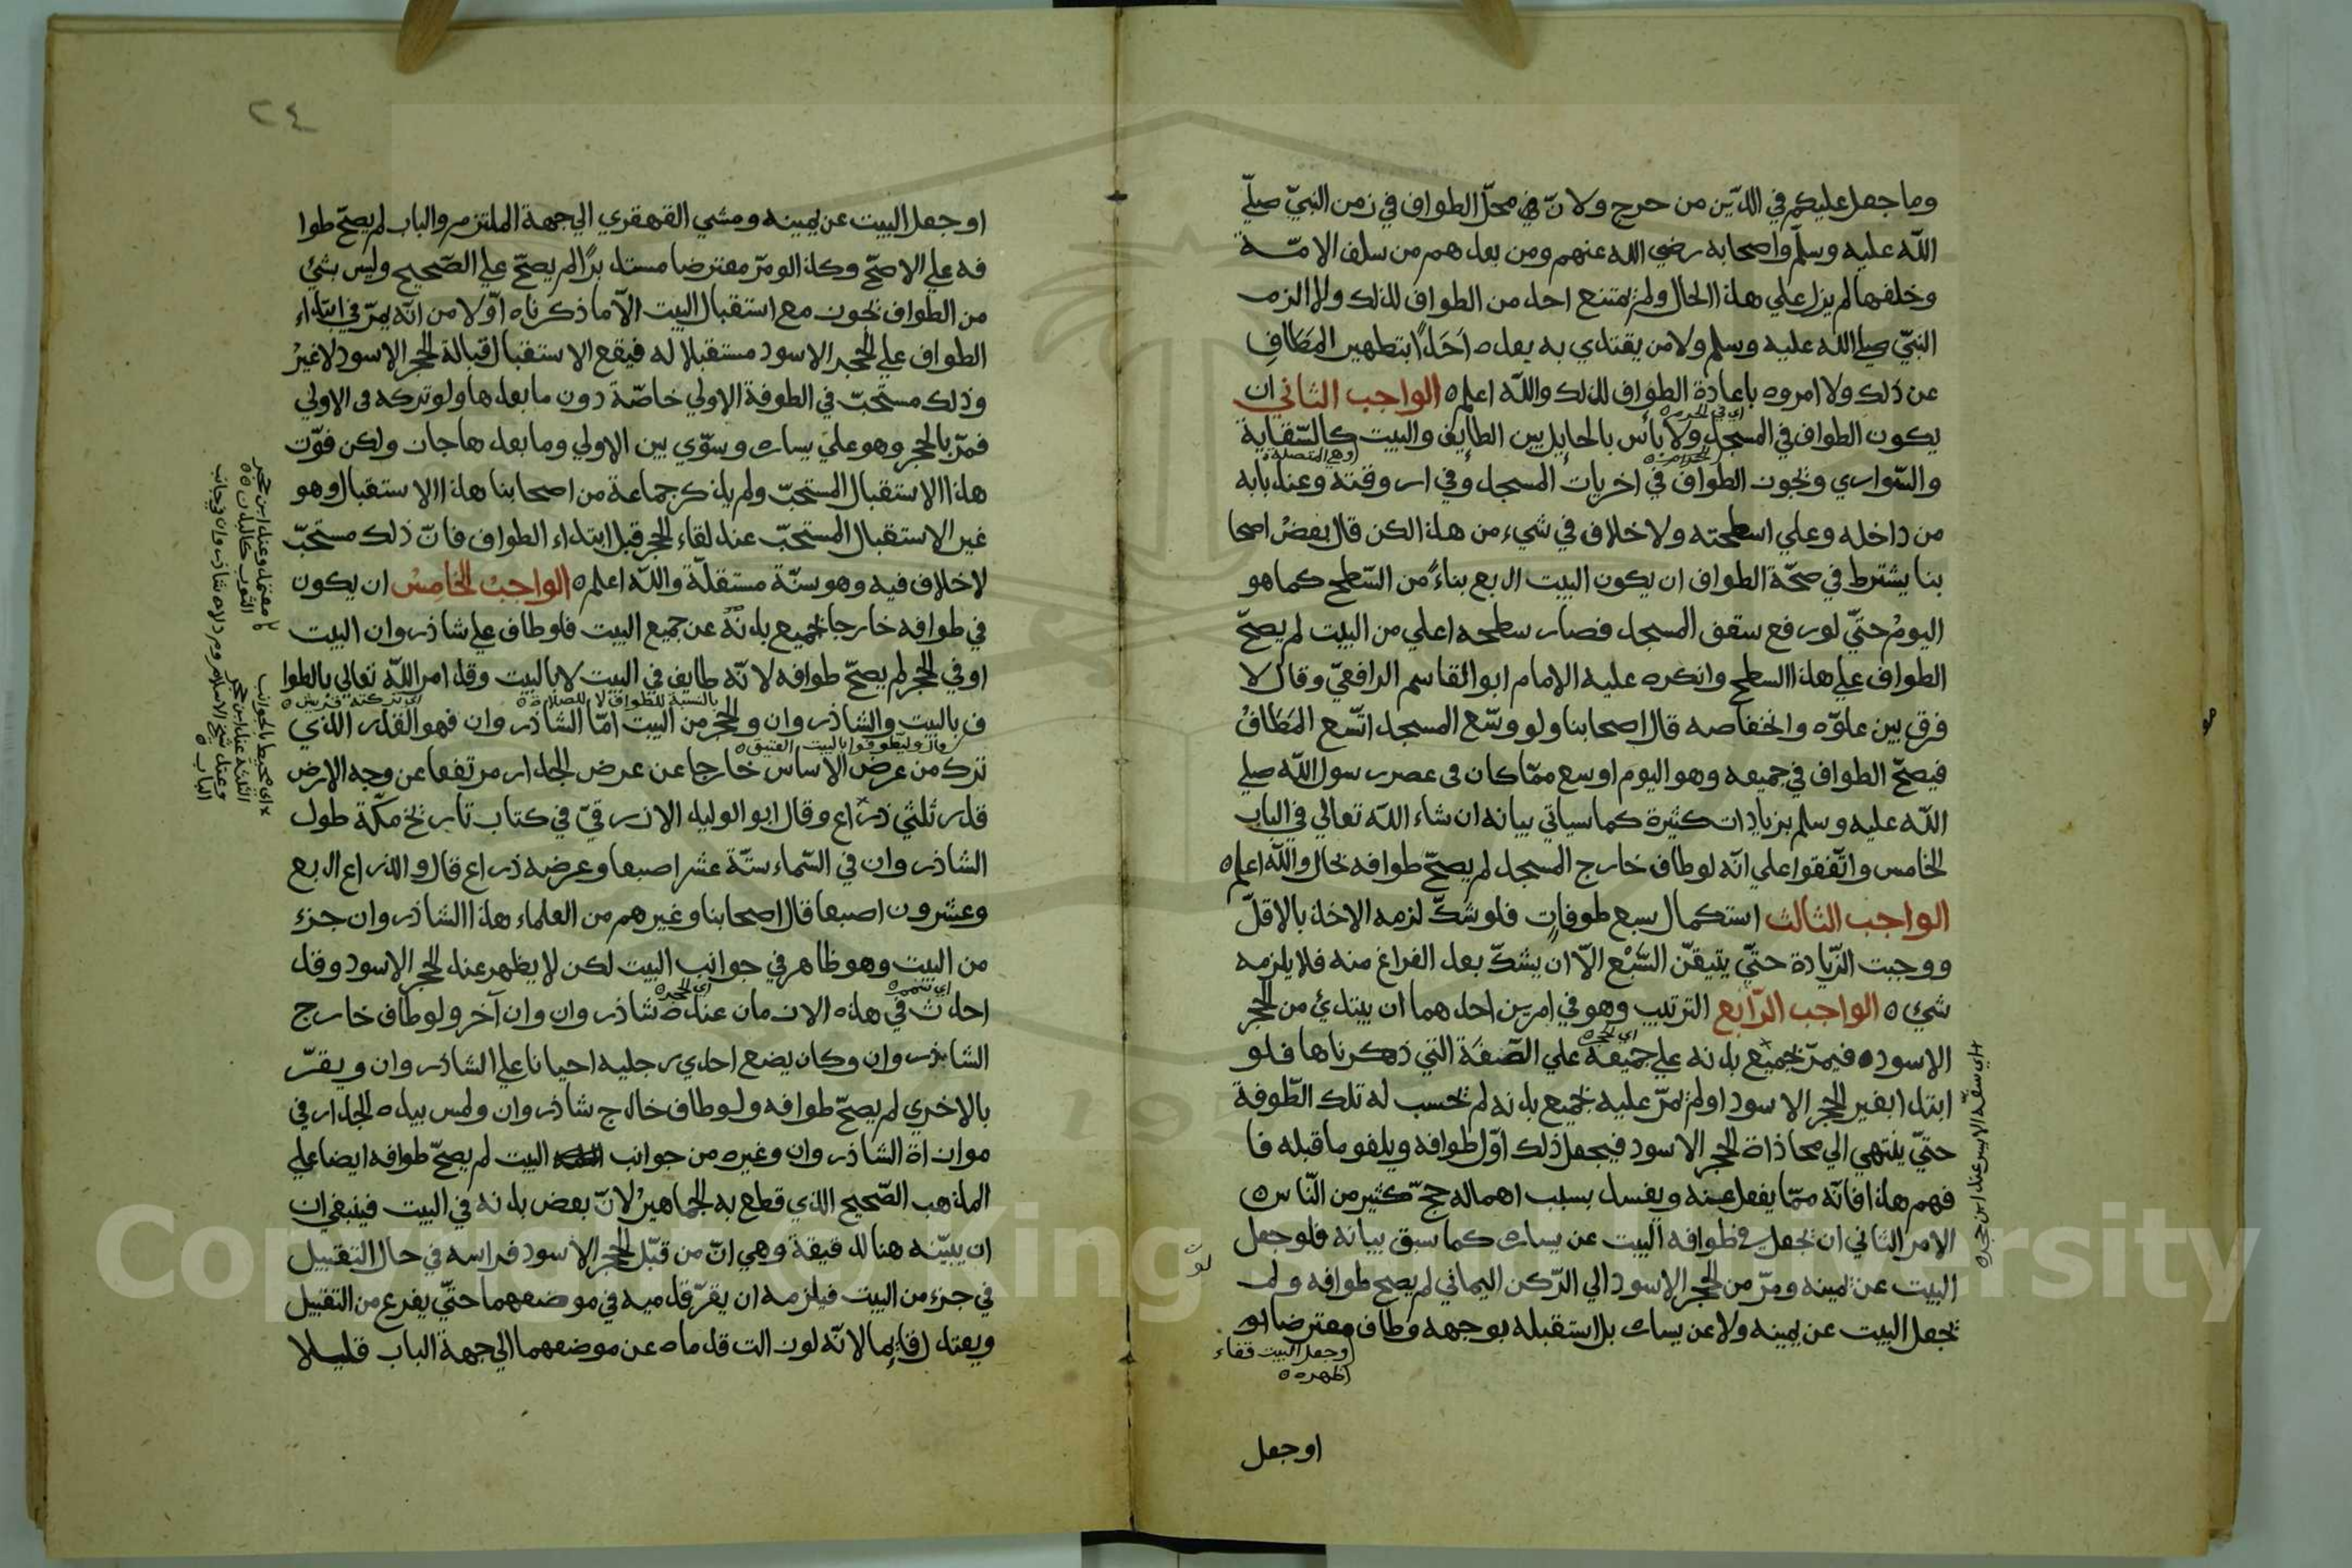 وما جعل عليكم في الدّين من حرج ولانّ محلّ الطواف في زمن النبيّ صلّي
اللّه عليه وسلّم واصحابه رضي الله عنهم ومن بعدهم من سلف الامّة
وخلفها لم يزل علي هذا الحال ولم يمتنع احد من الطواف لذلك ولا الزم
النبيّ صلي اللّه عليه وسلم ولا من يقتدي به بعده احدًا بتطهير المَطَافِ
عن ذلك ولا امروه باعادة الطواف لذلك واللّه اعلم ه الواجب الثاني ان
اي في الحرم ه
يكون الطواف في المسجد ولا بأس بالحايل بين الطايف والبيت كالسّقاية
الحرام ه
وهي المتصلة ه
والسّواري ويجوز الطواف في اخريات المسجد وفي اروقته وعند بابه
من داخله وعلي اسطحته ولا خلاف في شيء من هذا لكن قال بعضُ اصحا
بنا يشترط في صحّة الطواف ان يكون البيت ارفع بناءً من السّطح كما هو
اليومُ حتّي لو رفع سقف المسجد فصار سطحه اعلي من البيت لم يصحّ
الطواف علي هذا السطح وانكره عليه الامام ابو القاسم الرافعيّ وقال لا
فرق بين علوّه وانخفاضه قال اصحابنا ولو وسّع المسجد اتّسع المَطَافُ
فيصحّ الطواف في جميعه وهو اليوم اوسع ممّا كان فى عصر رسول اللّه صلي
اللّه عليه وسلم بزيادات كثيرة كما سياتي بيانه ان شاء اللّه تعالي في الباب
الخامس واتّفقوا علي انّه لو طاف خارج المسجد لم يصحّ طوافه بحال واللّه اعلم ه
الواجب الثالث استكمال سبع طوفاتٍ فلو شكّ لزمه الاخذ بالاقلّ
ووجبت الزّيادة حتّي يتيقّن السّبْع الاّ ان يشكّ بعد الفراغ منه فلا يلزمه
شيء ه الواجب الرّابع الترتيب وهو في امرين احدهما ان يبتدئ من الحجر
اي الحجر ه
الاسود ه فيمرّ بجميع بدنه علي جميعه علي الصّفة التي ذكرناها فلو
ابتدا بغير الحجر الاسود او لم يمرّ عليه بجميع بدنه لم تحسب له تلك الطّوفة
حتّي ينتهي الي محاذاة الحجر الاسود فيجعل ذلك اوّل طوافه ويلغو ما قبله فا
فهم هذا فانّه ممّا يغفل عنه ويفسد بسبب اهماله حجّ كثير من النّاس ه
الامر الثاني ان يجعل في طوافه البيت عن يساره كما سبق بيانه فلو جعل
البيت عن يمينه ومرّ من الحجر الاسود الي الرّكن اليماني لم يصح طوافه ولو لم
يجعل البيت عن يمينه ولا عن يساره بل استقبله بوجهه وطاف معترضا او
وجعل البيت قفاء
ظهره ه
اوجعل
٢٤
او جعل البيت عن يمينه ومشي القهقري الي جهة الملتزم والباب لم يصحّ طوا
فه علي الاصحّ وكذا لو مرّ معترضا مستدبرًا لم يصحّ علي الصّحيح وليس بشئ
من الطواف يجوز مع استقبال البيت الاّ ما ذكرناه اوّلا من انّه يمرّ في ابتداء
الطواف علي الحجر الاسود مستقبلا له فيقع الاستقبال قبالة الحجر الاسود لا غيرُ
وذلك مستحبّ في الطوفة الاولي خاصّة دون ما بعدها ولو تركه فى الاولي
فمرّ بالحجر وهو علي يساره وسوّي بين الاولي وما بعدها جاز ولكن فوّت
هذا الاستقبال المستحبّ ولم يذكر جماعة من اصحابنا هذا الاستقبال وهو
غير الاستقبال المستحبّ عند لقاء الحجر قبل ابتداء الطواف فانّ ذلك مستحبّ
لا خلاف فيه وهو سنّة مستقلّة واللّه اعلم ه الواجبُ الخامسُ ان يكون
في طوافه خارجا بجميع بدنه عن جميع البيت فلو طاف علي شاذروان البيت
او في الحجر لم يصحّ طوافه لانّه طايف في البيت لا بالبيت وقد امر اللّه تعالي بالطوا
بالنسبة للطواف لا للصلاة ه ه
اي تركته قريش ه
ف بالبيت والشاذروان والحجر من البيت امّا الشاذروان فهو القدر الذي
قال وليطوفوا بالبيت العتيق ه
ترك من عرض الاساس خارجا عن عرض الجدار مرتفعا عن وجه الارض
قدر ثلثي ذراع وقال ابو الوليد الازرقيّ في كتاب تاريخ مكّة طول
الشاذروان في السّماء ستّة عشر اصبعا وعرضه ذراع قال والذراع اربع
وعشرون اصبعا قال اصحابنا وغيرهم من العلماء هذا الشاذروان جزء
من البيت وهو ظاهر في جوانب البيت لكن لا يظهر عند الحجر الاسود وقد
اي الحجر ه
احدث في هذه الازمان عنده شاذروان وان آخر ولو طاف خارج
الشاذروان وكان يضع احدي رجليه احيانا علي الشاذروان ويقرّ
بالاخري لم يصحّ طوافه ولو طاف خارج شاذروان ولمس بيده الجدار في
موازاة الشاذروان وغيره من جوانب البيت لم يصحّ طوافه ايضا علي
المذهب الصّحيح الذي قطع به الجماهيرُ لانّ بعض بدنه في البيت فينبغي ان
ان يبيّنه هنا لدقيقة وهي انّ من قبّل الحجر الاسود فراسه في حال التقبيل
في جزء من البيت فيلزمه ان يقرّ قدميه في موضعهما حتّي يفرغ من التقبيل
ويعتدل قايما لانّه لو زالت قدماه عن موضعهما الي جهة الباب قليلا